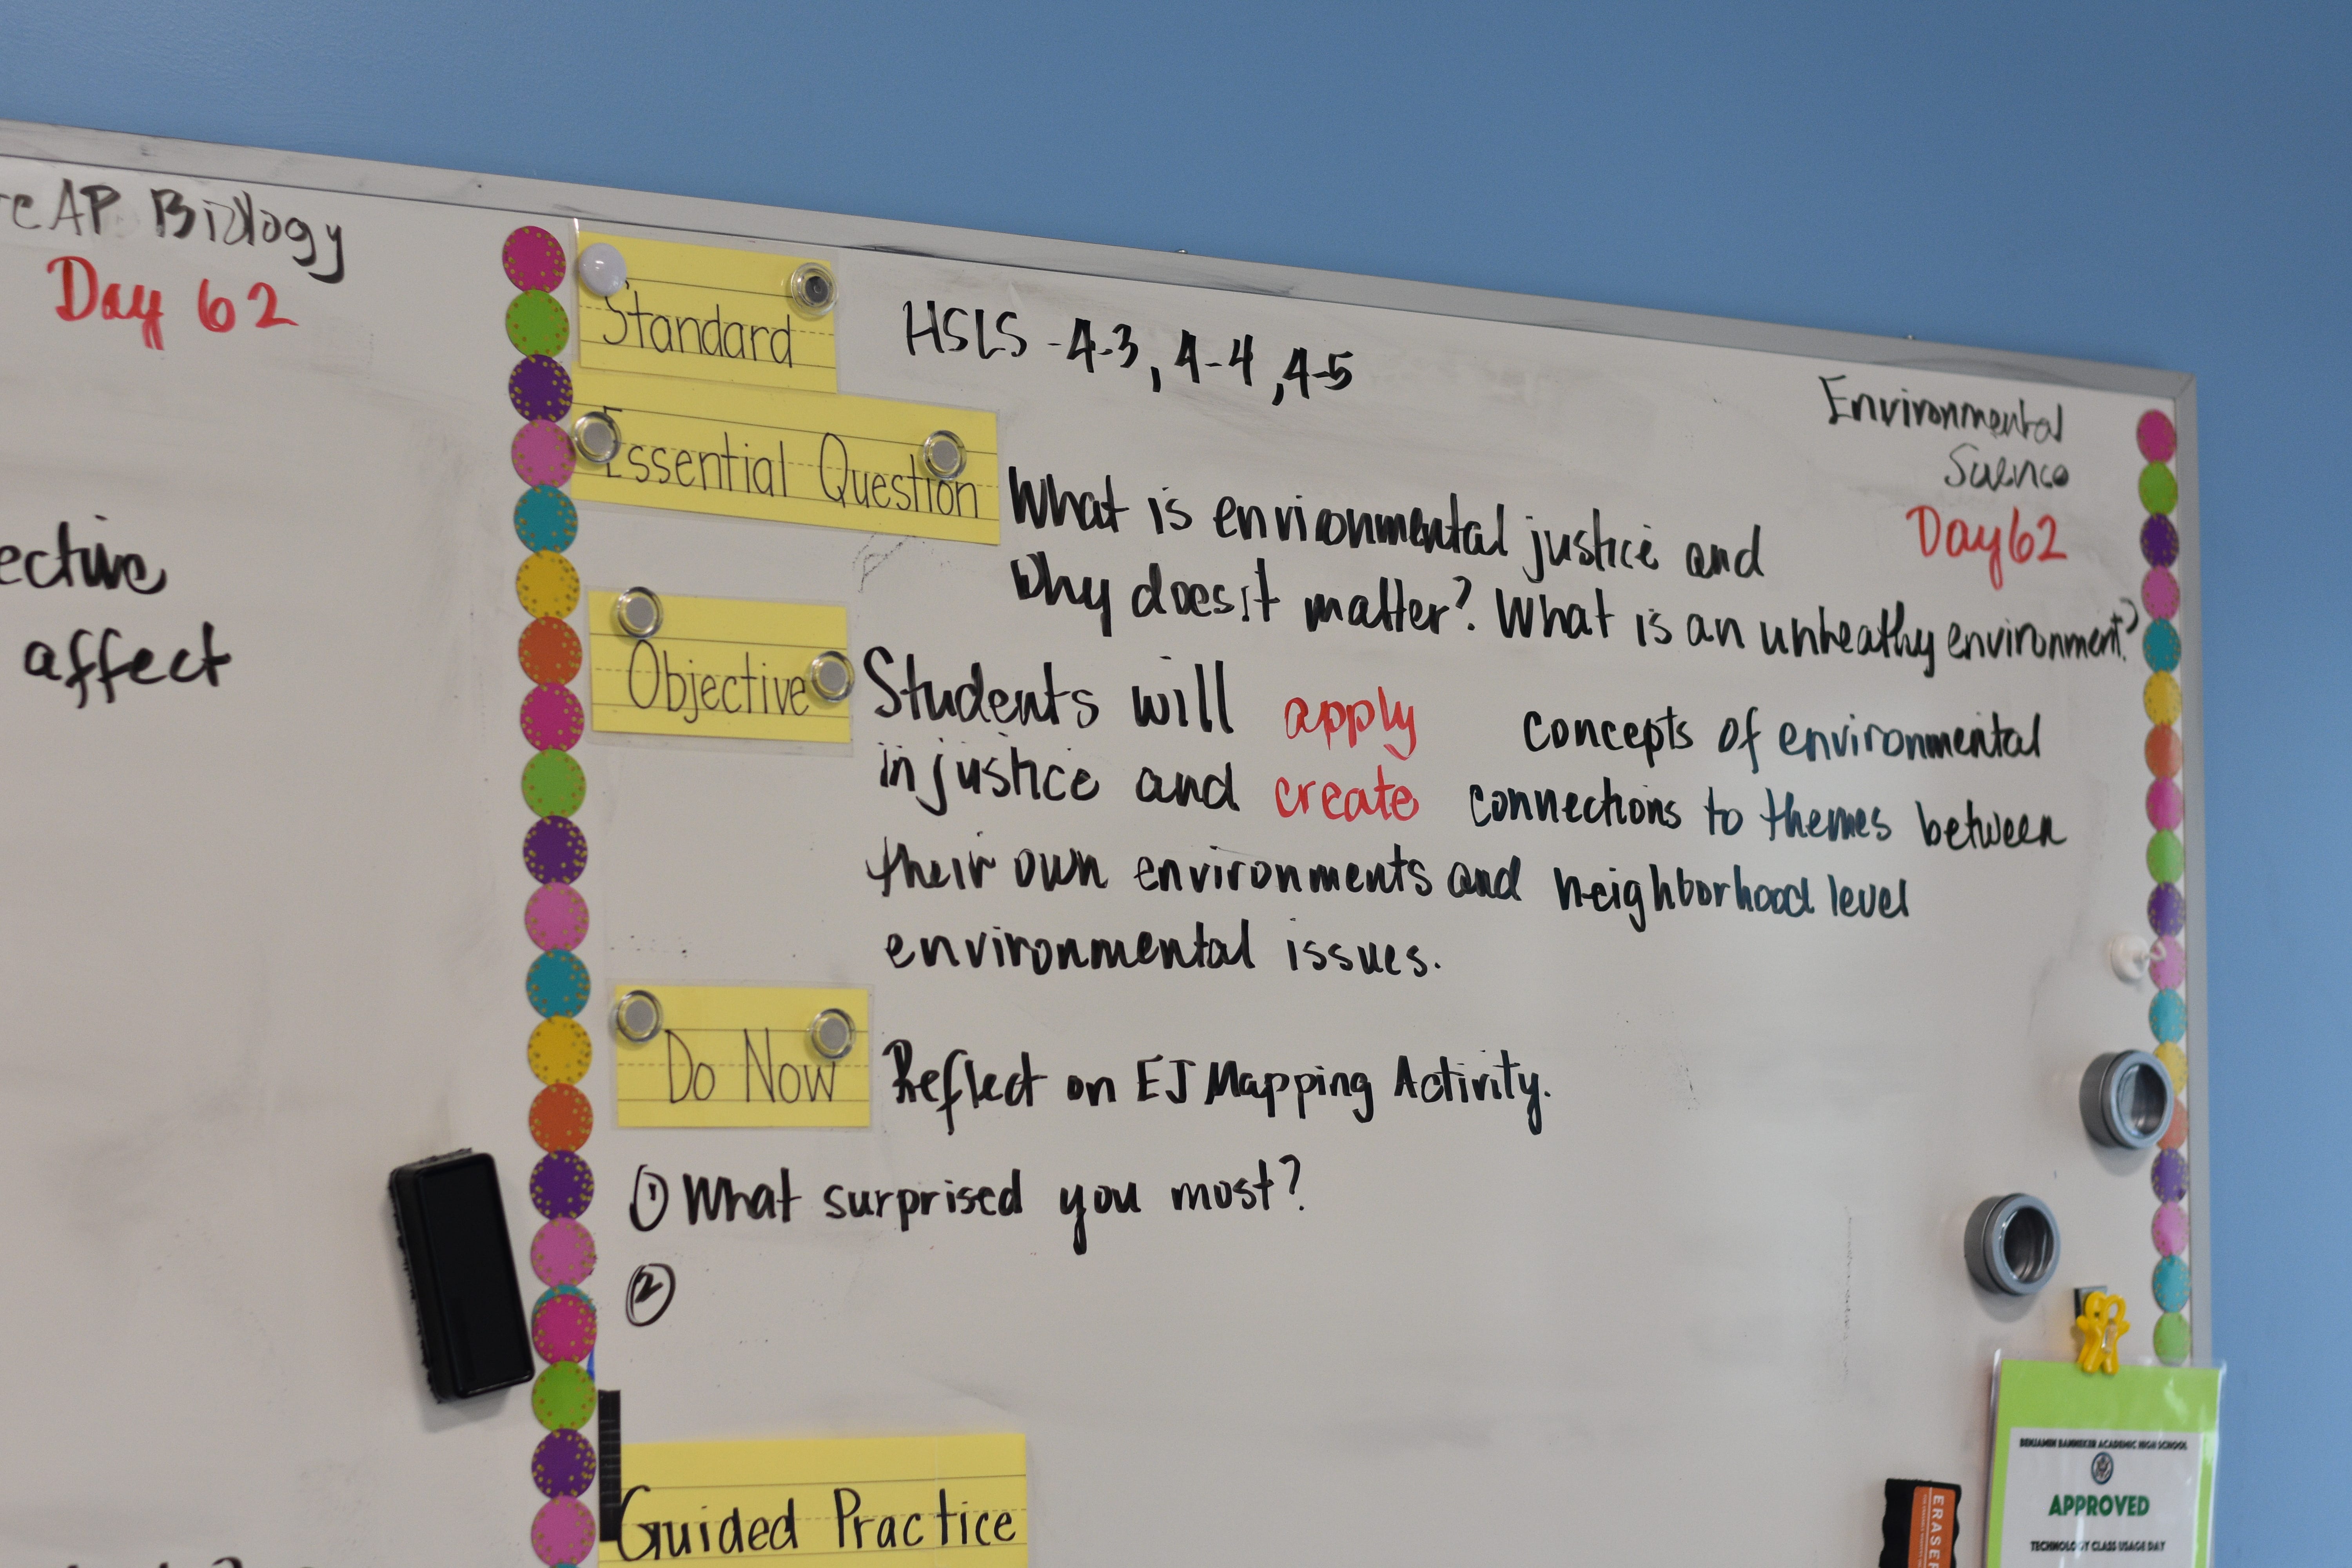 AP Biology
Day 62
affect
Standard
HSLS -4-3, 4-4, 4-5
Environmental
Science
Day 62
Essential Question
What is environmental justice and
why does it matter? What is an unheathy environment?
Objective
Students will apply concepts of environmental
injustice and create connections to themes between
their own environments and neighborhood level
environmental issues.
Do Now
Reflect on EJ Mapping Activity.
① What surprised you most?
②
Guided Practice
ERASER
BENJAMIN BANNEKER ACADEMIC HIGH SCHOOL
APPROVED
TECHNOLOGY CLASS USAGE DAY